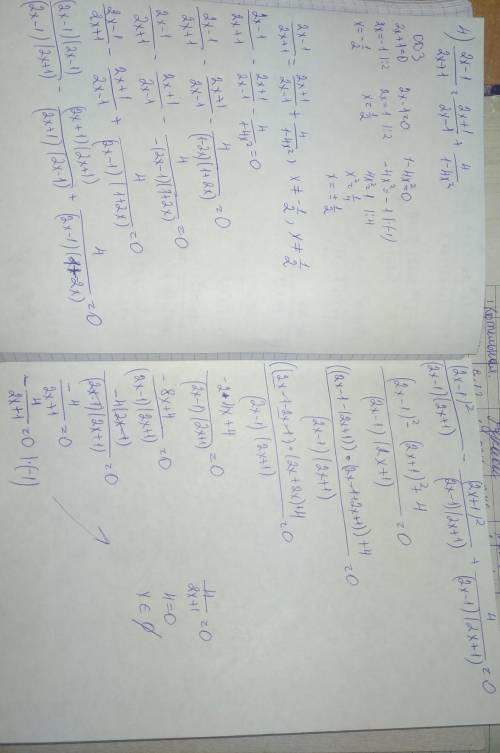 4) (2x-1)/(2x+1) = (2x+1)/(2x-1) + 4/(1-4x²)
ОДЗ
2x+1=0   2x-1=0   1-4x²=0
2x=-1 |:2   2x=1 |:2   -4x²=-1 |(-1)
x=-1/2   x=1/2   4x²=1 |:4
x²=1/4
x=±1/2
(2x-1)/(2x+1) = (2x+1)/(2x-1) + 4/(1-4x²), x≠-1/2, x≠1/2
(2x-1)/(2x+1) - (2x+1)/(2x-1) - 4/(1-4x²) = 0
(2x-1)/(2x+1) - (2x+1)/(2x-1) - 4/((1-2x)(1+2x)) = 0
(2x-1)/(2x+1) - (2x+1)/(2x-1) - 4/(-(2x-1)(1+2x)) = 0
(2x-1)/(2x+1) - (2x+1)/(2x-1) + 4/((2x-1)(1+2x)) = 0
(2x-1)(2x-1)/((2x-1)(2x+1)) - (2x+1)(2x+1)/((2x+1)(2x-1)) + 4/((2x-1)(1+2x)) = 0
(2x-1)²/((2x-1)(2x+1)) - (2x+1)²/((2x-1)(2x+1)) + 4/((2x-1)(2x+1)) = 0
((2x-1)²-(2x+1)²+4)/((2x-1)(2x+1)) = 0
((2x-1-(2x+1))•(2x-1+2x+1)+4)/((2x-1)(2x+1)) = 0
((2x-1-2x-1)•(2x+2x)+4)/((2x-1)(2x+1)) = 0
(-2•4x+4)/((2x-1)(2x+1)) = 0
(-8x+4)/((2x-1)(2x+1)) = 0
-4(2x-1)/((2x-1)(2x+1)) = 0
-4/(2x+1) = 0
-4/(2x+1) = 0 |(-1)
4/(2x+1) = 0
4=0
x∈∅